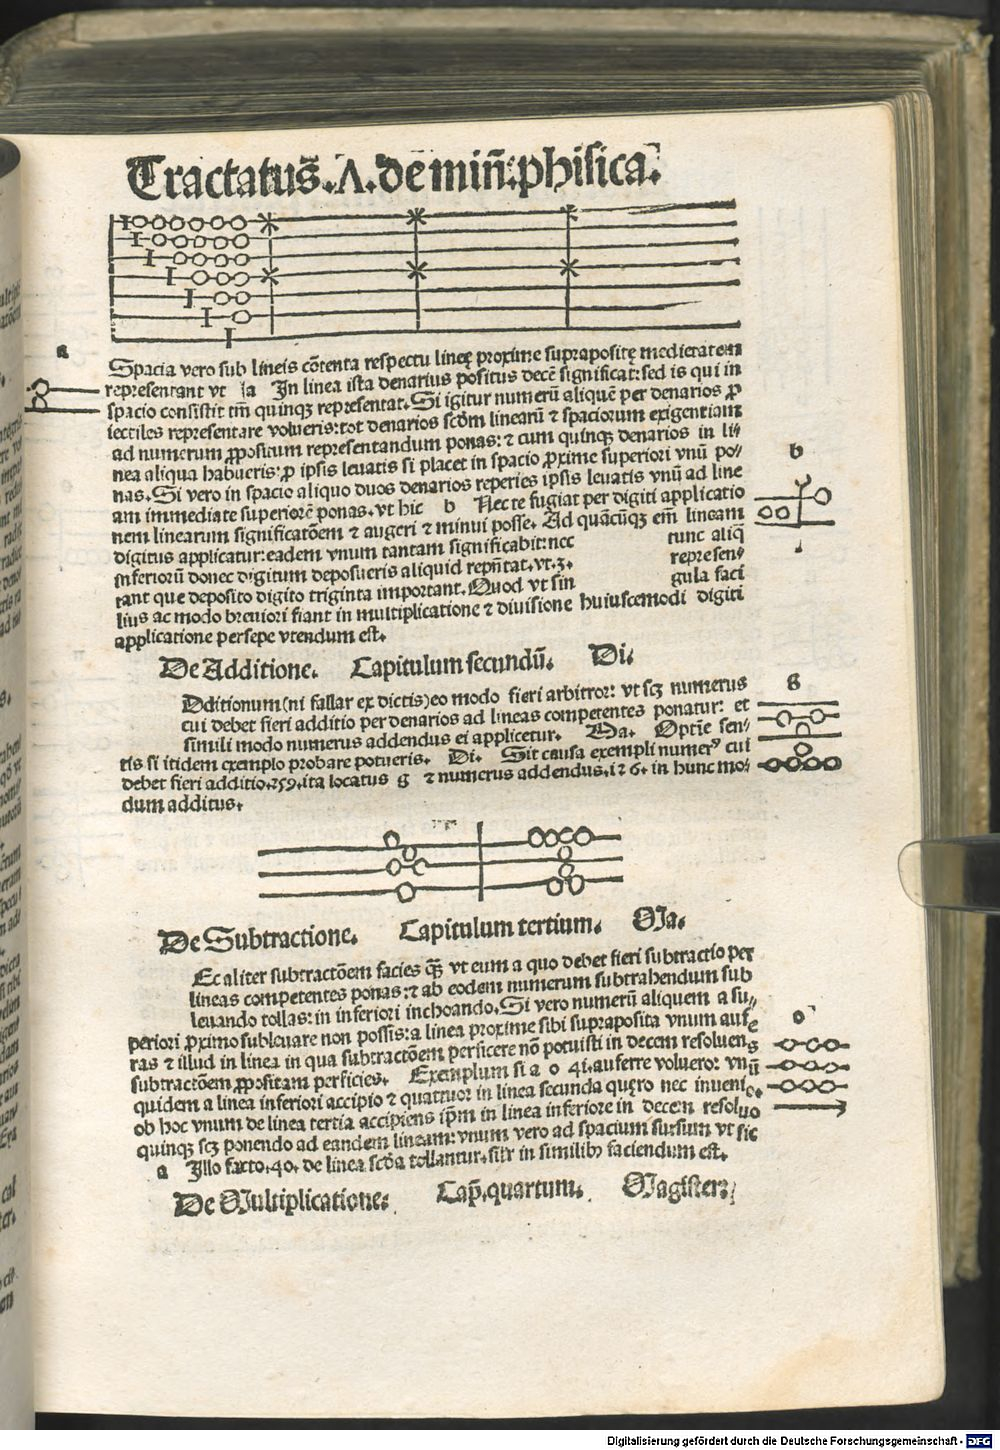 Tractatus̄.Λ.de min̄:phisica.
I
a
Spacia vero sub lineis cōtenta respectu lineę proxime supraposite medietatem
representant vt a In linea ista denarius positus decē significat:sed is qui in
spacio consistit tm̄ quinqꝫ representat. Si igitur numerū aliquē per denarios ꝓ
iectiles representare volueris:tot denarios scd̄m linearū ⁊ spaciorum exigentiam
ad numerum ꝓpositum representandum ponas: ⁊ cum quinqꝫ denarios in li⸗
nea aliqua habueris:ꝓ ipsis leuatis si placet in spacio ꝓxime superiori vnū po⸗
nas. Si vero in spacio aliquo duos denarios reperies ipsis leuatis vnū ad line
am immediate superiorē ponas. vt hic b Nec te fugiat per digiti applicatio
nem linearum significatōem ⁊ augeri ⁊ minui posse. Ad quācūqꝫ em̄ lineam
digitus applicatur:eadem vnum tantam significabit:nec tunc aliq̄
inferiorū donec digitum deposueris aliquid repn̄tat.vt.3. represen⸗
tant que deposito digito triginta important. Quod vt sin gula faci
lius ac modo breuiori fiant in multiplicatione ⁊ diuisione huiuscemodi digiti
applicatione persepe vtendum est.
b
De Additione. Capitulum secundū. Di.
Dditionum(ni fallar ex dictis)eo modo fieri arbitror: vt scꝫ numerus
cui debet fieri additio per denarios ad lineas competentes ponatur: et
simili modo numerus addendus ei applicetur. Ma. Optie sen⸗
tis si itidem exemplo probare potueris. Di. Sit causa exempli numerꝰ cui
debet fieri additio.259.ita locatus g ⁊ numerus addendus.126. in hunc mo⸗
dum additus.
g
De Subtractione. Capitulum tertium. Ma.
Ec aliter subtractōem facies qꝫ̄ vt eum a quo debet fieri subtractio per
lineas competentes ponas:⁊ ab eodem numerum subtrahendum sub
leuando tollas: in inferiori inchoando. Si vero numerū aliquem a su⸗
periori ꝓximo subleuare non possis:a linea proxime sibi supraposita vnum aufe
ras ⁊ illud in linea in qua subtractōem perficere nō potuisti in decem resoluens
subtractōem ꝓpositam perficies. Exemplum si a o 41.auferre voluero: vnū
quidem a linea inferiori accipio ⁊ quattuor in linea secunda quęro nec inuenio.
ob hoc vnum de linea tertia accipiens ip̄m in linea inferiore in decem resoluo
quinqꝫ scꝫ ponendo ad eandem lineam: vnum vero ad spacium sursum vt sic
a Illo facto.40. de linea scd̄a tollantur.silr in similibꝰ faciendum est.
o
De Multiplicatione. Cap̄.quartum. Magister:
Digitalisierung gefördert durch die Deutsche Forschungsgemeinschaft - DFG